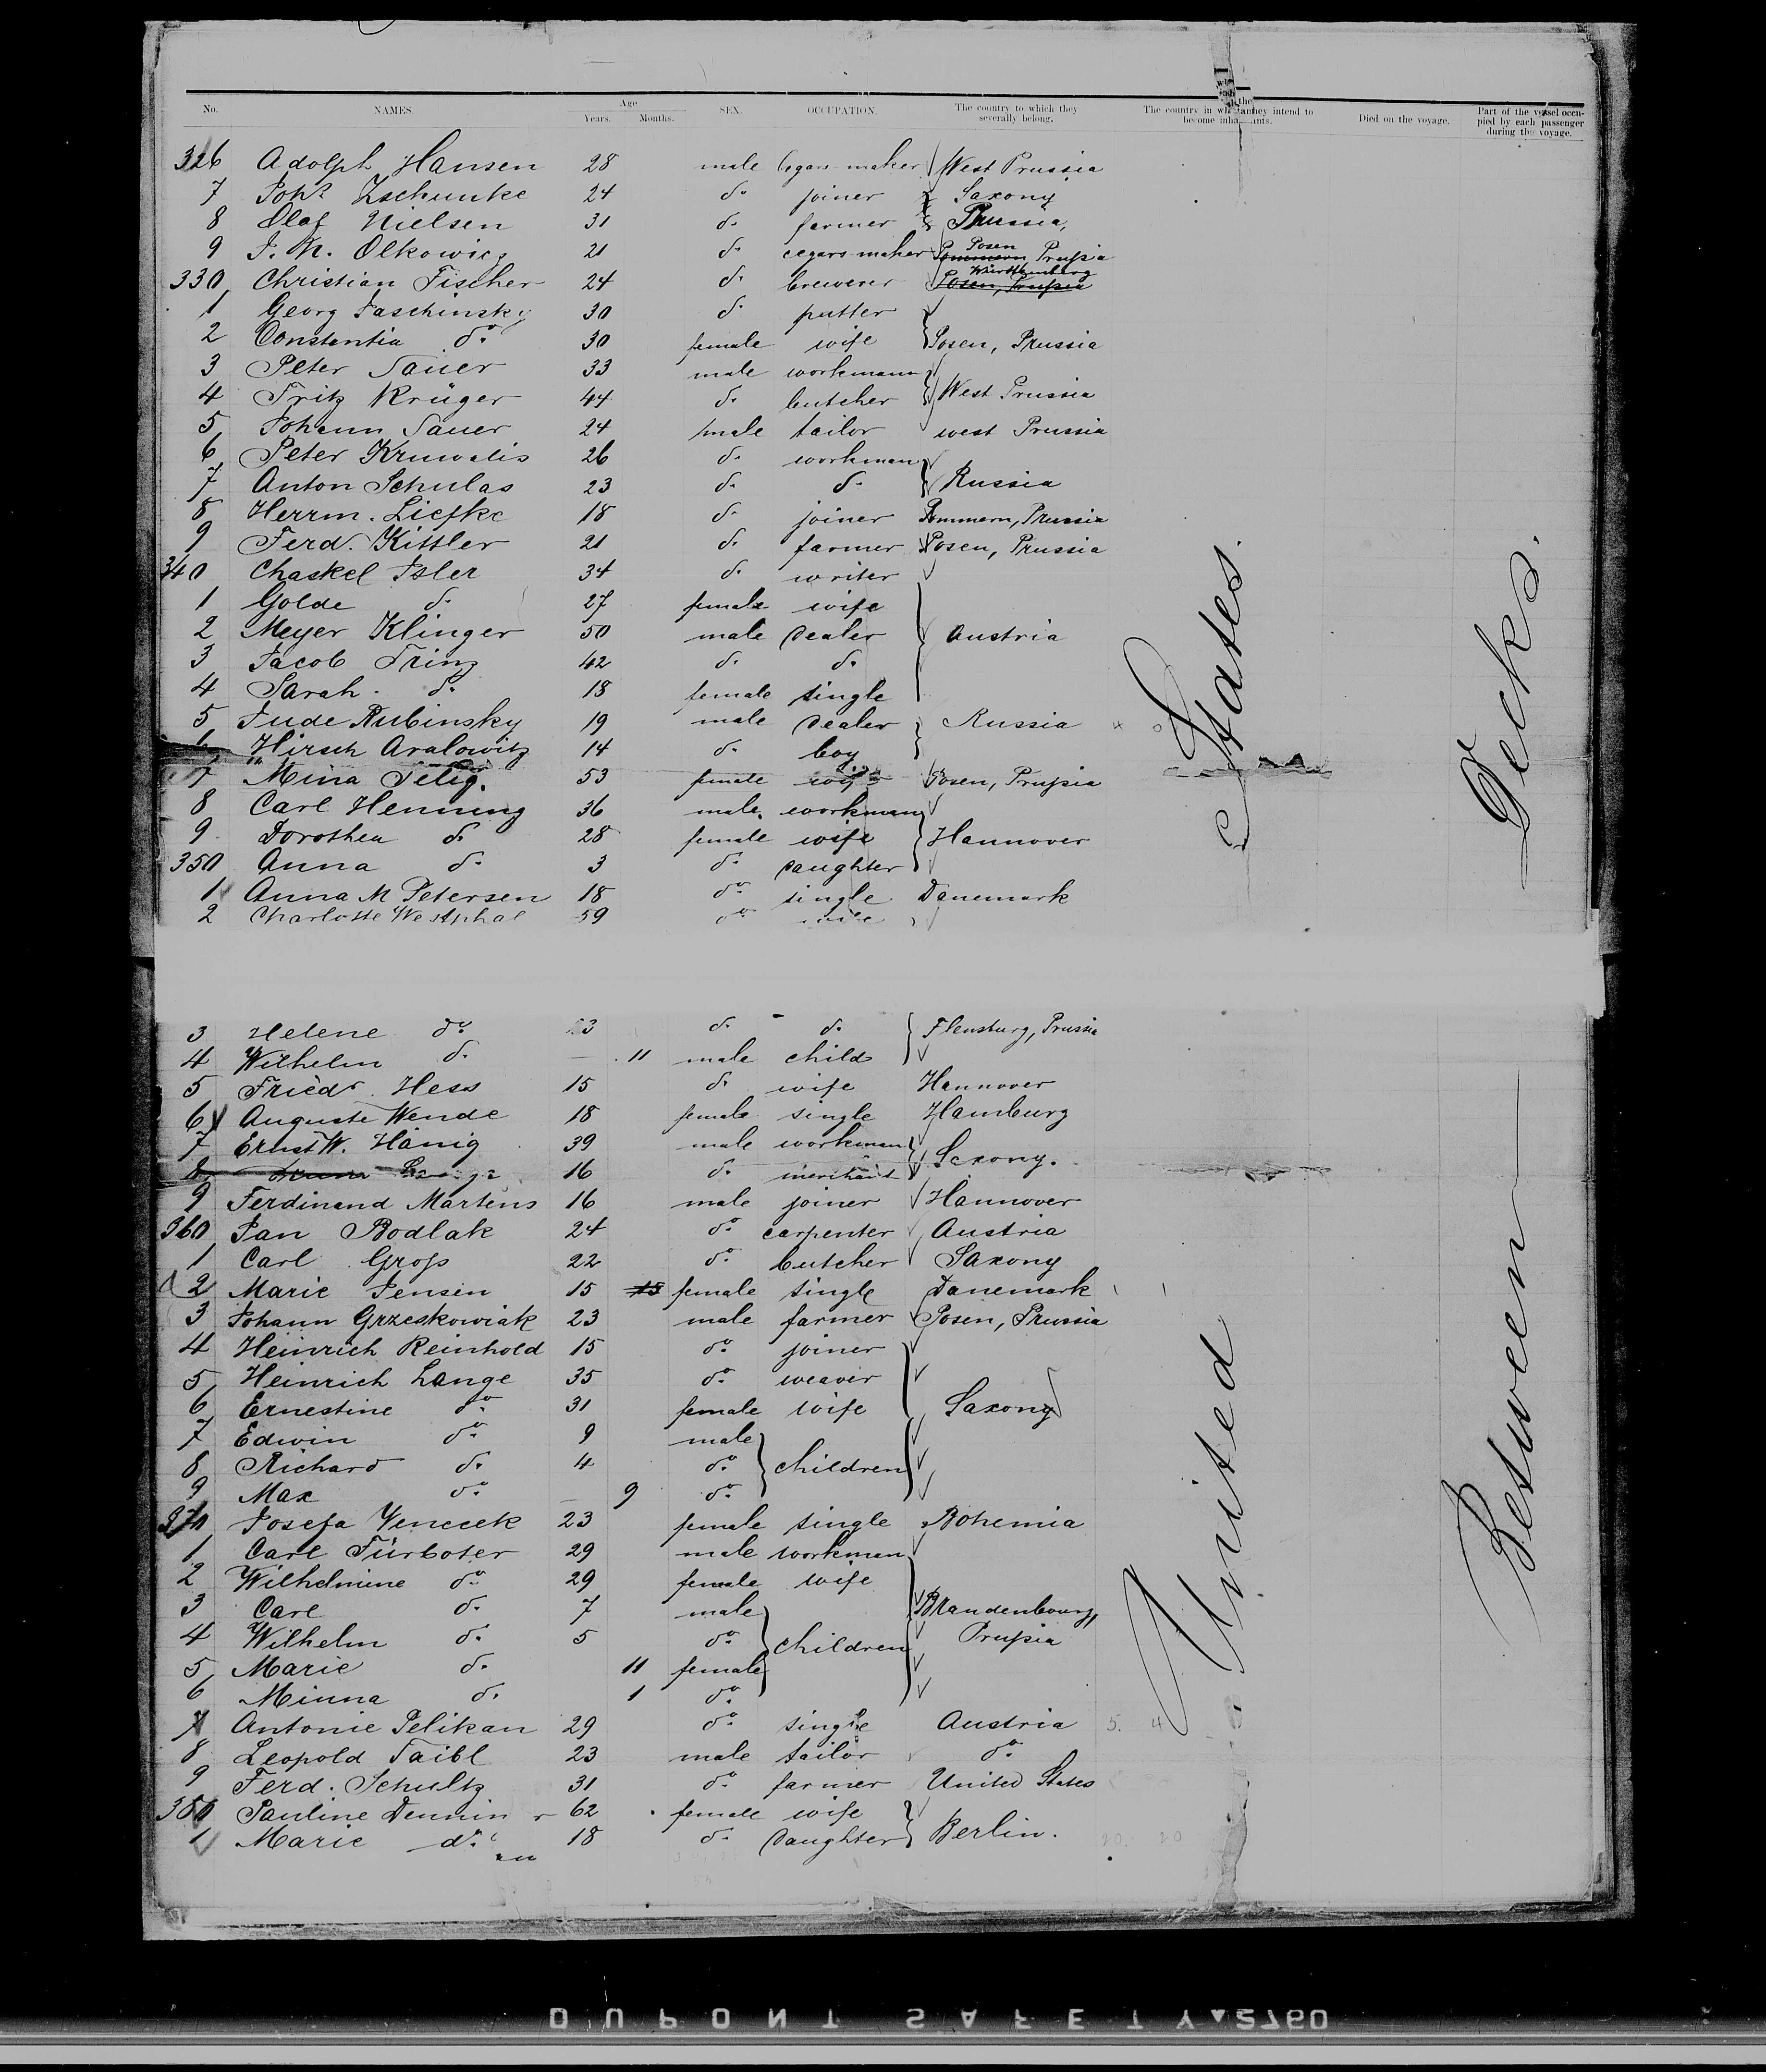 No. NAMES. Age Years. Months. SEX. OCCUPATION. The country to which they severally belong. The country in which they intend to become inhabitants. Died on the voyage. Part of the vessel occupied by each passenger during the voyage.
326 Adolph Hansen 28 male cegars maker West Prussia
7 Johs Zschunke 24 do. joiner Saxony
8 Olaf Nielsen 31 do. farmer Prussia,
9 J. N. Olkowicz 21 do. cegars maker Posen Pommern Prussia
330 Christian Fischer 24 do. brewerer Württemberg Posen, Prussia
1 Georg Jaschinsky 30 do. putler
2 Constantia do. 30 female wife Posen, Prussia
3 Peter Sauer 33 male workmann
4 Fritz Krüger 44 do. butcher West Prussia
5 Johann Sauer 24 male tailor west Prussia
6 Peter Kruwalis 26 do. workman
7 Anton Schulas 23 do. do. Russia
8 Herrm. Liefke 18 do. joiner Pommern, Prussia
9 Ferd. Kittler 21 do. farmer Posen, Prussia
340 Chaskel Isler 34 do. writer
1 Golde do. 27 female wife
2 Meyer Klinger 50 male dealer Austria
3 Jacob Trinz 42 do. do.
4 Sarah do. 18 female single
5 Jude Rubinsky 19 male dealer Russia
6 Hirsch Aralowitz 14 do. boy
7 Mina Selig. 53 female wife Posen, Prussia
8 Carl Henning 36 male workman
9 Dorothea do. 28 female wife Hannover
350 Anna do. 3 do. daughter
1 Anna M Petersen 18 do. single Danemark
2 Charlotte Westphal 59 do. wife
3 Helene do. 23 do. do. Flensburg, Prussia
4 Wilhelm do. — 11 male child
5 Friedr. Hess 15 do. wife Hannover
6 Auguste Wende 18 female single Hamburg
7 Ernst W. Hänig 39 male workman
8 16 do. merchant Saxony.
9 Ferdinand Martens 16 male joiner Hannover
360 Jan Bodlak 24 do. carpenter Austria
1 Carl Gross 22 do. butcher Saxony
2 Marie Jensen 15 female single Danemark
3 Johann Grzeskowiak 23 male farmer Posen, Prussia
4 Heinrich Reinhold 15 do. joiner
5 Heinrich Lange 35 do. weaver
6 Ernestine do. 31 female wife Saxony
7 Edwin do. 9 male
8 Richard do. 4 do. children
9 Max do. — 9 do.
370 Josefa Venecek 23 female single Bohemia
1 Carl Fürboter 29 male workman
2 Wilhelmine do. 29 female wife
3 Carl do. 7 male Brandenbourg,
4 Wilhelm do. 5 do. children Prussia
5 Marie do. 11 female
6 Minna do. 1 do.
7 Antonie Pelikan 29 do. single Austria 5. 4
8 Leopold Taibl 23 male tailor do.
9 Ferd. Schultz 31 do. farmer United States
380 Pauline Dennin 62 female wife
1 Marie do. 18 do. daughter Berlin.
United States.
Between Decks.
DUPONT SAFETY 2760